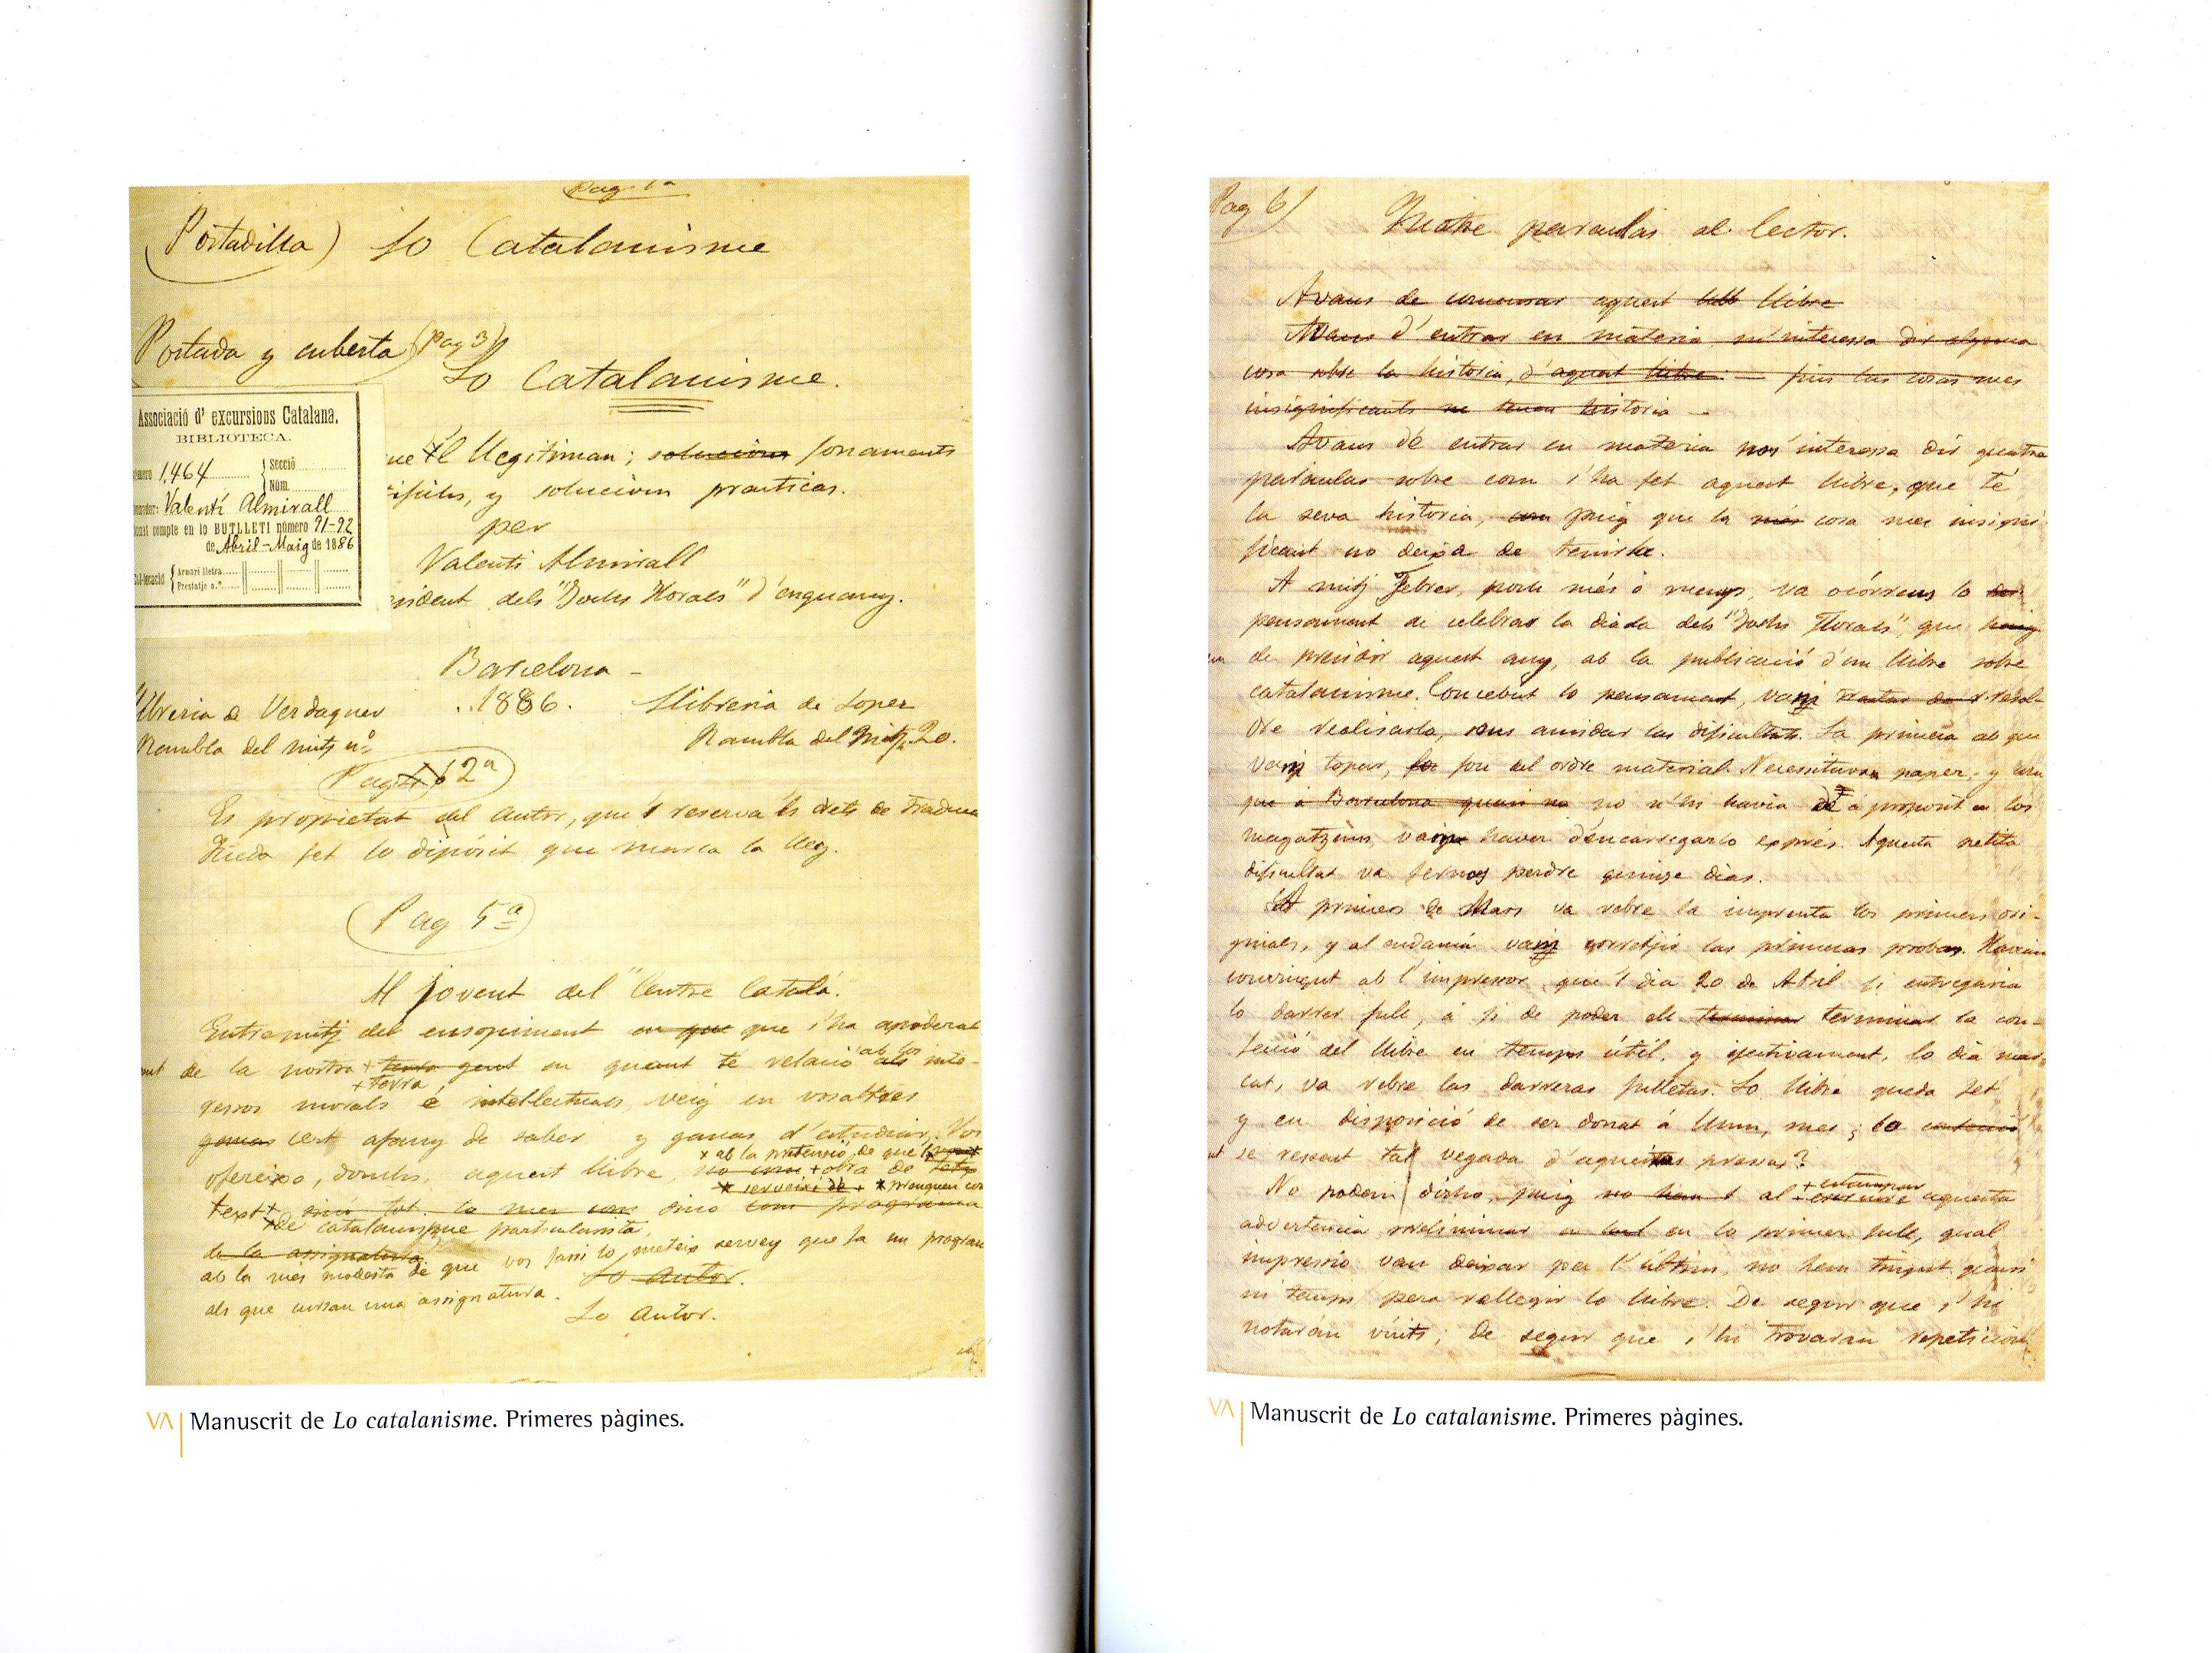 Pag 1ª
Portadilla) Lo Catalanisme
Portada y cuberta (Pag 3)
Lo Catalanisme.
Associació d' excursions Catalana.
BIBLIOTECA.
1.464 Secció
Núm.
Valentí Almirall
compte en lo BUTLLETÍ número 91-92
de Abril-Maig de 1886
Armari lletra
Prestatje n.º
que 'l llegitiman; solucions fonaments
y solucions practicas.
per
Valentí Almirall
dels "Jochs Florals" d'enguany.
Barcelona
1886.
Llibreria de Verdaguer
Rambla del mitj nº
Llibreria de Lopez
Rambla del Mitj, 20.
Pag 2ª
Es propietat del autor, que's reserva 'ls drets de
Queda fet lo dipósit que marca la lley.
Pag 5ª
Al jovent del "Centre Catalá".
Entremitj del ensopiment en que que s'ha apoderat
de la nostra + gent en quant té relació als ab los inte-
+ terra
ressos morals é intellectuals, veig en vosaltres
ganas cert afany de saber y ganas d'estudiar. Vos
× ab la pretensió, de que
ofereixo, donchs, aquest llibre, no com + obra de
serveixi de + prenguen com
text sinó tot lo mes com sino com programa
de catalanisme particularista,
de la assignatura
ab la més modesta de que vos fassi lo meteix servey que fa un program
Lo autor.
als que cursan una assignatura.
Lo autor.
VA Manuscrit de Lo catalanisme. Primeres pàgines.
Pag 6)
Quatre paraulas al lector.
Avans de comensar aquest llibre
Avans d'entrar en materia m'interessa dir alguna
cosa sobre la historia, d'aquest llibre: — fins las cosas mes
insignificants ne tenen historia —
Avans de entrar en materia nos interessa dir quatre
paraulas sobre com s'ha fet aquest llibre, que té
la seva historia, com puig que la más cosa mes insigni-
ficant no deixa de tenirla.
A mitj Febrer, poch més ó menys, va ocórrens lo
pensament de celebrar la diada dels "Jochs Florals", que haig
de presidir aquest any, ab la publicació d'un llibre sobre
catalanisme. Concebut lo pensament, varem tractar de resol-
dre realisarlo, sens amidar las dificultats. La primera ab que
varem topar, fou del ordre material. Necessitavam paper, y com
que á Barcelona quasi no no n'hi havia de á proposit en los
magatzems, varem haver d'encarregarlo exprés. Aquesta petita
dificultat va fernos perdre quinze dias.
A primers de Mars va rebre la imprenta los primers ori-
ginals, y al endemá varem corretjir las primeras probas. Haviam
convingut ab l'impressor, que'l dia 20 de Abril se li entregaria
lo darrer full, á fi de poder ell terminar terminar la con-
fecció del llibre en temps útil, y efectivament, lo dia mar-
cat, va rebre las darreras fulletas. Lo llibre queda fet
y en disposició de ser donat á llum, mes ¿ la
se ressent tal vegada d'aquestas presses?
No podem dirho, puig no hem al + estampar aquesta
advertencia preliminar en lo primer full, qual
impressió vam deixar per l'últim, no hem tingut quasi
ni temps pera rellegir lo llibre. De segur que s'hi
notarán vicis; de segur que s'hi trovarán repeticions
VA Manuscrit de Lo catalanisme. Primeres pàgines.